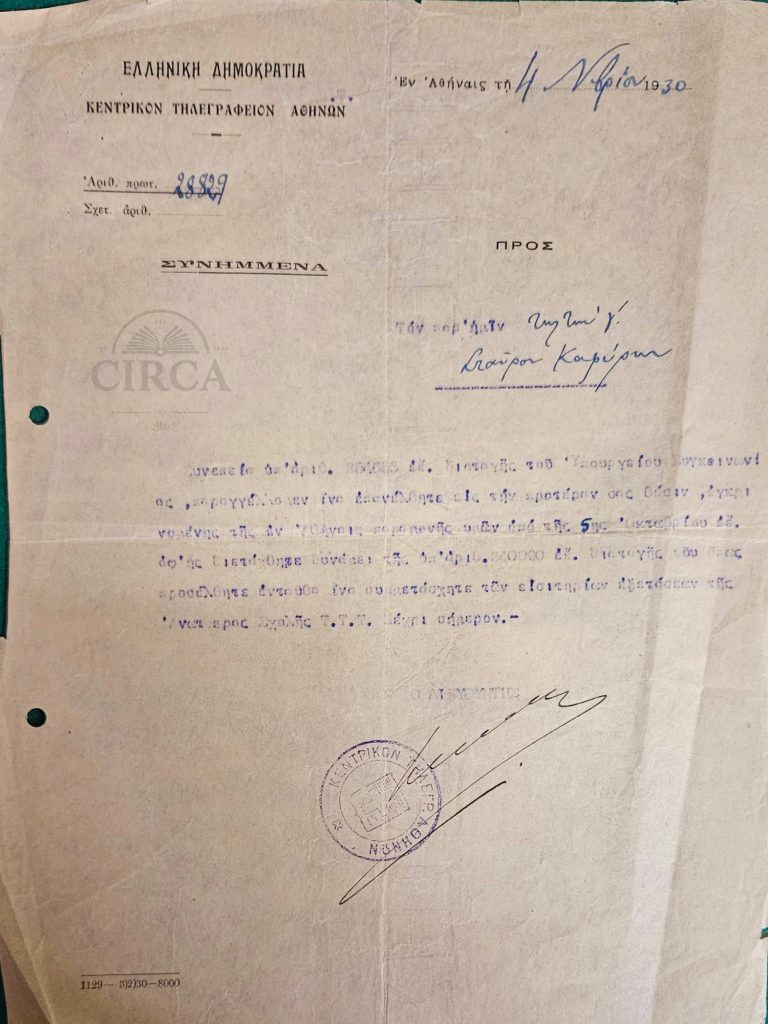 ΕΛΛΗΝΙΚΗ ΔΗΜΟΚΡΑΤΙΑ
ΚΕΝΤΡΙΚΟΝ ΤΗΛΕΓΡΑΦΕΙΟΝ ΑΘΗΝΩΝ
Ἐν Ἀθήναις τῇ 4 Νβρίου 1930
Ἀριθ. πρωτ. 28829
Σχετ. ἀριθ.
ΣΥΝΗΜΜΕΝΑ
ΠΡΟΣ
Τόν παρ'ἡμῖν
Σταῦρον
CIRCA
Συνεπείᾳ ὑπ'ἀριθ. ἐ.ἔ. διαταγῆς τοῦ Ὑπουργείου Συγκοινωνί
ας ,παραγγέλλομεν ἵνα ἐπανέλθητε εἰς τήν προτέραν σας θέσιν ,ἐγκρι
νομένης τῆς ἐν Ἀθήναις παραμονῆς ὑμῶν ἀπό τῆς 5ης Ὀκτωβρίου ἐ.ἔ.
ἀφ'ἧς διετάχθητε δυνάμει τῆς ὑπ'ἀριθ. ἐ.ἔ. διαταγῆς του ὅπως
προσέλθητε ἐνταῦθα ἵνα συμμετάσχητε τῶν εἰσιτηρίων ἐξετάσεων τῆς
Ἀνωτέρας Σχολῆς Τ.Τ.Τ. μέχρι σήμερον.-
Ο ΔΙΕΥΘΥΝΤΗΣ
ΚΕΝΤΡΙΚΟΝ ΤΗΛΕΓΡ. ΑΘΗΝΩΝ
1129 — 3)2)30—8000